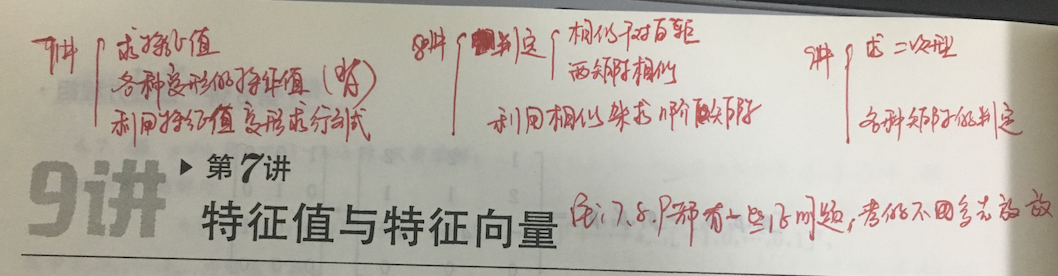 7讲 求特征值
各种变形的特征值
利用特征值变形求行列式
8讲 判定 相似于对角矩
两矩阵相似
利用相似来求n阶矩阵
9讲 求二次型
各种矩阵的判定
9讲
第7讲
特征值与特征向量
7.8.9都有一些问题,考的不多先放放